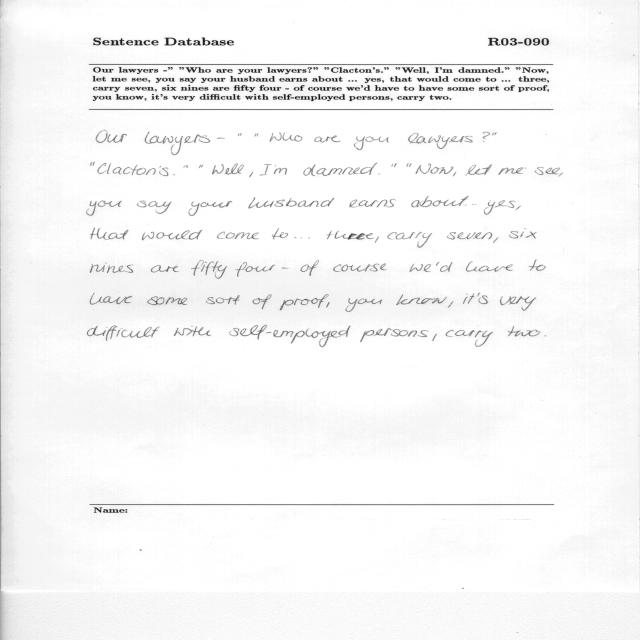 Sentence Database R03-090
Our lawyers -" "Who are your lawyers?" "Clacton's." "Well, I'm damned." "Now,
let me see, you say your husband earns about ... yes, that would come to ... three,
carry seven, six nines are fifty four - of course we'd have to have some sort of proof,
you know, it's very difficult with self-employed persons, carry two.
Our lawyers - " " Who are you lawyers ?"
"Clacton's. " " Well, I'm damned. " "Now, let me see,
you say your husband earns about - yes,
that would come to ... three, carry seven, six
nines are fifty four - of course we'd have to
have some sort of proof, you know, it's very
difficult with self-employed persons, carry two.
Name: